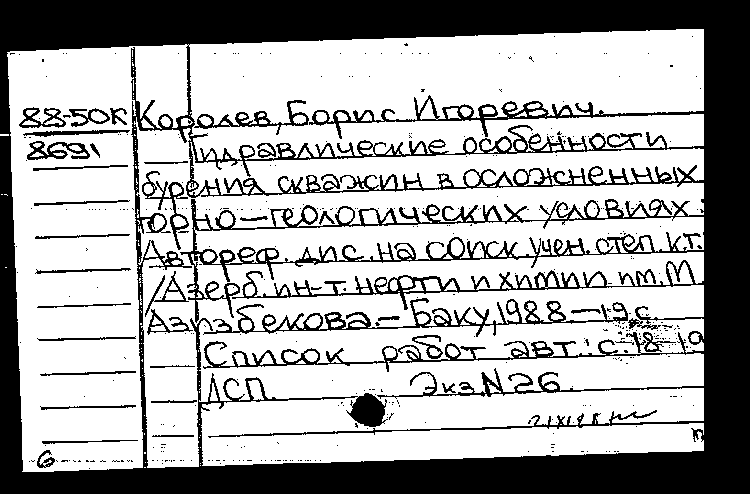 88-50К Королев, Борис Игоревич.
8691 Гидравлические особенности
бурения скважин в осложненных
горно-геологических условиях:
Автореф. дис. на соиск. учен. степ. к.т.
/Азерб. ин-т. нефти и химии им. М.
Азизбекова. - Баку, 1988 - 19 с.
Список работ авт.: с. 18 19
ДСП. Экз. N 26.
6